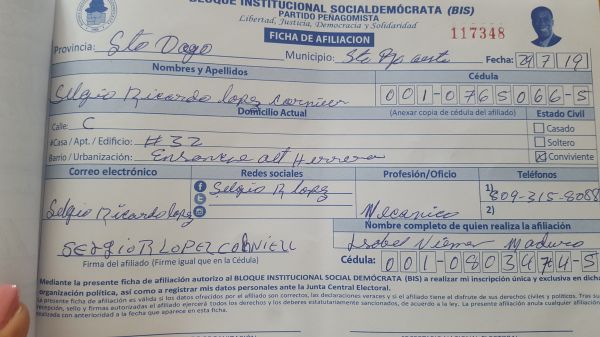 BLOQUE INSTITUCIONAL SOCIALDEMÓCRATA (BIS)
PARTIDO PEÑAGOMISTA
Libertad, Justicia, Democracia y Solidaridad
FICHA DE AFILIACION 117348
Provincia: Sto Dgo Municipio: Sto Dgo oeste Fecha: 29/7/19
Nombres y Apellidos Cédula
Selgio Ricardo lopez Cornieer 001-0765066-5
Domicilio Actual (Anexar copia de cédula del afiliado) Estado Civil
Calle: C Casado
#Casa / Apt. / Edificio: #32 Soltero
Barrio / Urbanización: Ensanche alt Herrera Conviviente
Correo electrónico Redes sociales Profesión/Oficio Teléfonos
Selgio R lopez 1) 809-315-8088
Selgio Ricardo lopez Mecanico 2)
Nombre completo de quien realiza la afiliación
SERGIO R LOPEZ Isabel Maduro
Firma del afiliado (Firme igual que en la Cédula) Cédula: 001-0803974-5
Mediante la presente ficha de afiliación autorizo al BLOQUE INSTITUCIONAL SOCIAL DEMÓCRATA (BIS) a realizar mi inscripción única y exclusiva en dicha
organización política, así como a registrar mis datos personales ante la Junta Central Electoral.
La presente ficha de afiliación es válida si los datos ofrecidos por el afiliado son correctos, las declaraciones veraces y si el afiliado tiene el disfrute de sus derechos civiles y políticos. Tras su
recepción, sello y firmas autorizadas el afiliado ejercerá todos los derechos y los deberes estatutariamente sancionados, de acuerdo a la ley. La presente afiliación anula cualquier afiliación
realizada con anterioridad a la fecha que aparece en esta ficha.